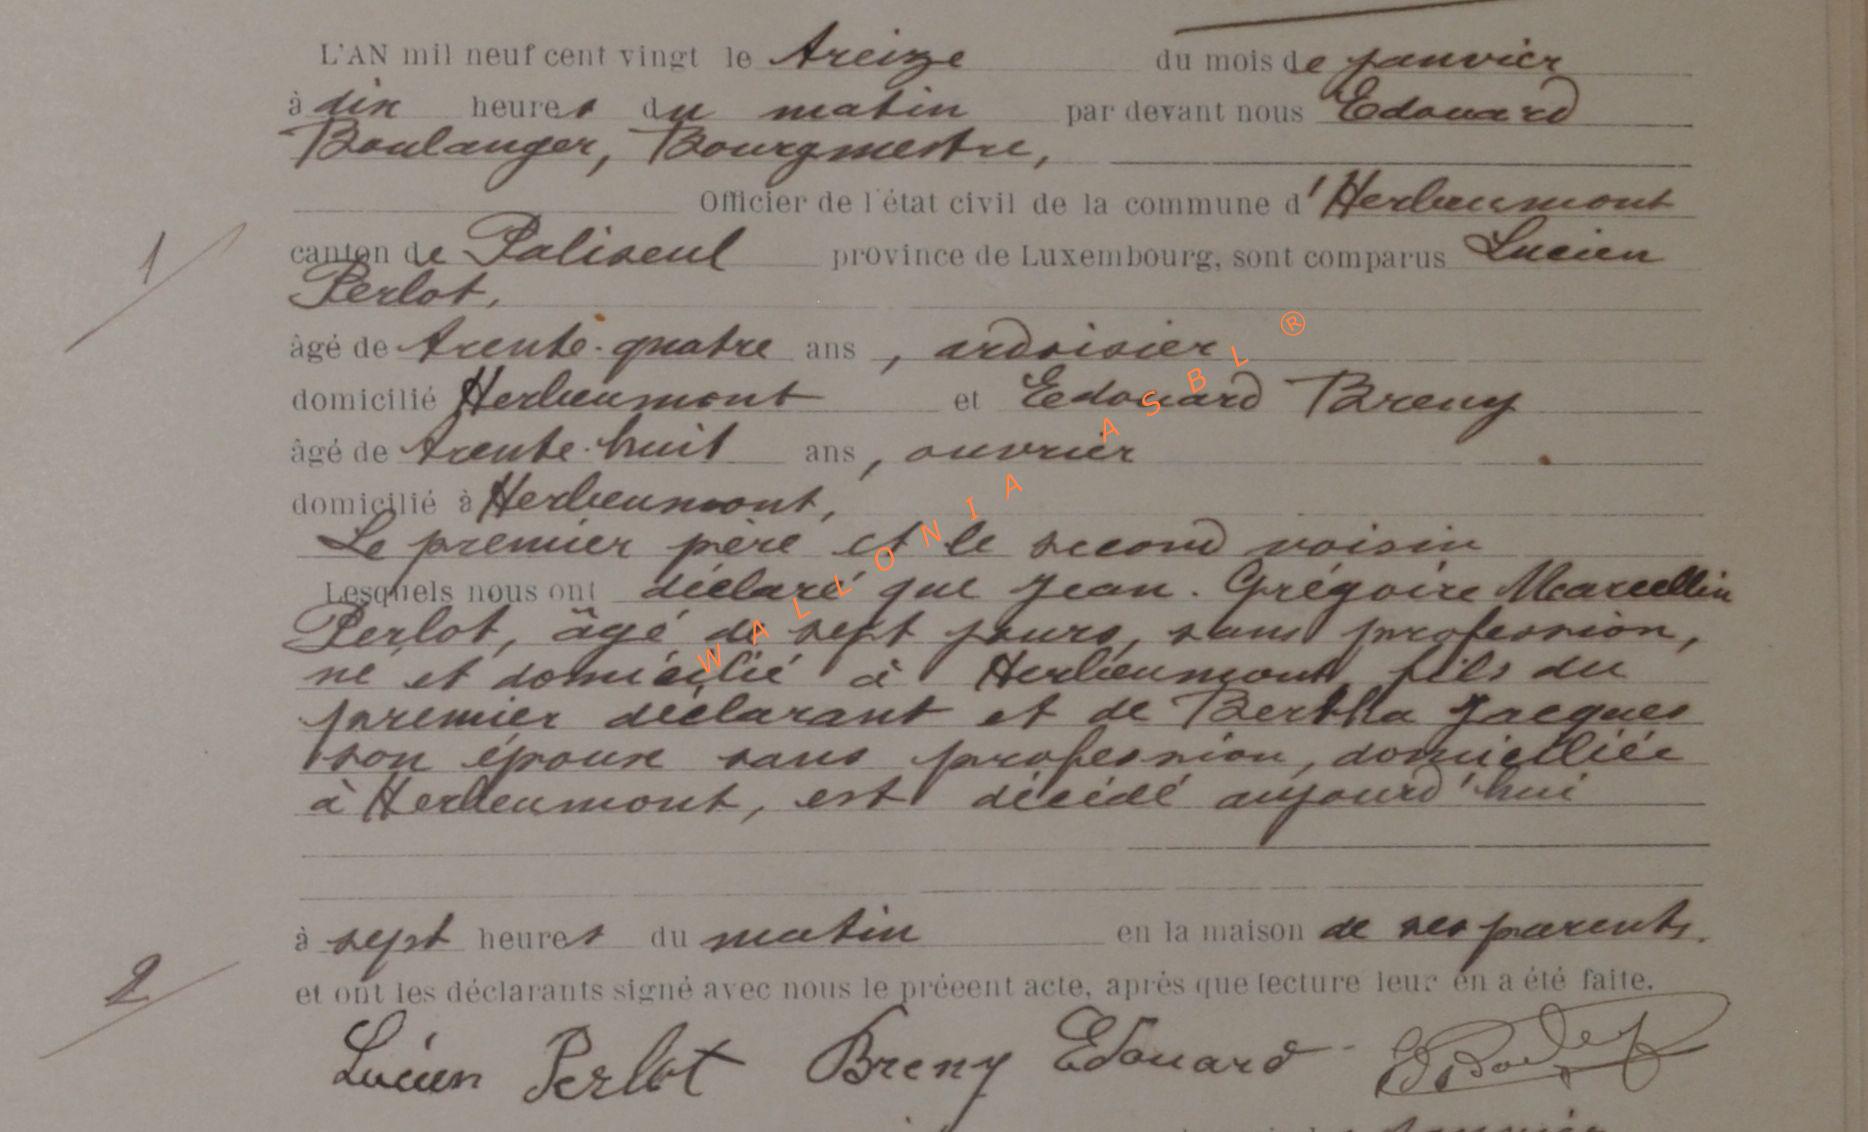 L'AN mil neuf cent vingt le treize du mois de janvier
à dix heures du matin par devant nous Edouard
Boulanger, Bourgmestre,
Officier de l'état civil de la commune d'Herbeumont
1
canton de Paliseul province de Luxembourg, sont comparus Lucien
Perlot,
âgé de trente-quatre ans, ardoisier
domicilié Herbeumont et Edouard Breny
âgé de trente-huit ans, ouvrier
domicilié à Herbeumont,
Le premier père et le second voisin
Lesquels nous ont déclaré que Jean-Grégoire Marcellin
Perlot, âgé de sept jours, sans profession,
né et domicilié à Herbeumont, fils du
premier déclarant et de Bertha Jacques
son épouse sans profession, domicilliée
à Herbeumont, est décédé aujourd'hui
à sept heures du matin en la maison de ses parents.
2
et ont les déclarants signé avec nous le préeent acte, après que lecture leur en a été faite.
Lucien Perlot Breny Edouard
WALLONIA ASBL ®